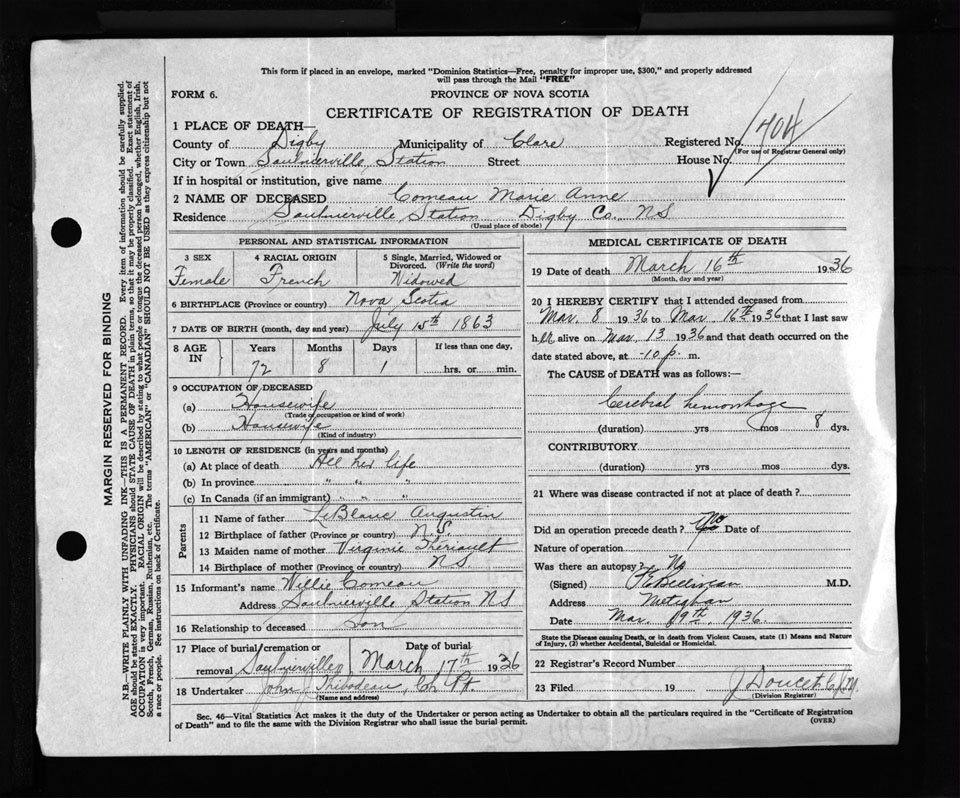 This form if placed in an envelope, marked "Dominion Statistics—Free, penalty for improper use, $300," and properly addressed
will pass through the Mail "FREE"
FORM 6.
PROVINCE OF NOVA SCOTIA
CERTIFICATE OF REGISTRATION OF DEATH
1 PLACE OF DEATH—
County of Digby Municipality of Clare Registered No. 404
(For use of Registrar General only)
City or Town Saulnierville Station Street House No.
If in hospital or institution, give name
2 NAME OF DECEASED Comeau Marie Anne
Residence Saulnierville Station Digby Co. NS
(Usual place of abode)
PERSONAL AND STATISTICAL INFORMATION
3 SEX Female
4 RACIAL ORIGIN French
5 Single, Married, Widowed or Divorced. (Write the word) Widowed
6 BIRTHPLACE (Province or country) Nova Scotia
7 DATE OF BIRTH (month, day and year) July 15th 1863
8 AGE IN Years Months Days If less than one day,
72 8 1 hrs. or min.
9 OCCUPATION OF DECEASED
(a) Housewife
(Trade occupation or kind of work)
(b) Housewife
(Kind of industry)
10 LENGTH OF RESIDENCE (in years and months)
(a) At place of death All her life
(b) In province " " "
(c) In Canada (if an immigrant) " " "
Parents
11 Name of father LeBlanc Augustin
12 Birthplace of father (Province or country) N.S.
13 Maiden name of mother Virginie Theriault
14 Birthplace of mother (Province or country) NS
15 Informant's name Willie Comeau
Address Saulnierville Station NS
16 Relationship to deceased Son
17 Place of burial, cremation or removal Saulnierville Date of burial March 17th 1936
18 Undertaker John Thibodeau, Ch. Pt.
(Name and address)
MEDICAL CERTIFICATE OF DEATH
19 Date of death March 16th 1936
(Month, day and year)
20 I HEREBY CERTIFY that I attended deceased from
Mar. 8 1936 to Mar. 16th 1936 that I last saw
her alive on Mar. 13 1936 and that death occurred on the
date stated above, at 10 p. m.
The CAUSE of DEATH was as follows:—
Cerebral hemorrhage
(duration) yrs mos 8 dys.
CONTRIBUTORY
(duration) yrs. mos dys.
21 Where was disease contracted if not at place of death?
Did an operation precede death? no Date of
Nature of operation
Was there an autopsy? No
(Signed) M.D.
Address Meteghan
Date Mar. 19th, 1936.
State the Disease causing Death, or in death from Violent Causes, state (1) Means and Nature
of Injury, (2) whether Accidental, Suicidal or Homicidal.
22 Registrar's Record Number
23 Filed 19 J Doucet
(Division Registrar)
Sec. 46—Vital Statistics Act makes it the duty of the Undertaker or person acting as Undertaker to obtain all the particulars required in the "Certificate of Registration
of Death" and to file the same with the Division Registrar who shall issue the burial permit.
(OVER)
MARGIN RESERVED FOR BINDING
N.B.—WRITE PLAINLY WITH UNFADING INK—THIS IS A PERMANENT RECORD. Every item of information should be carefully supplied.
AGE should be stated EXACTLY. PHYSICIANS should STATE CAUSE OF DEATH in plain terms, so that it may be properly classified. Exact statement of
OCCUPATION is very important. RACIAL ORIGIN will be described by stating to what people or tongue the deceased person belonged, whether English, Irish,
Scotch, French, German, Russian, Ruthenian, etc. The terms "AMERICAN" or "CANADIAN" SHOULD NOT BE USED as they express citizenship but not
a race or people. See instructions on back of Certificate.